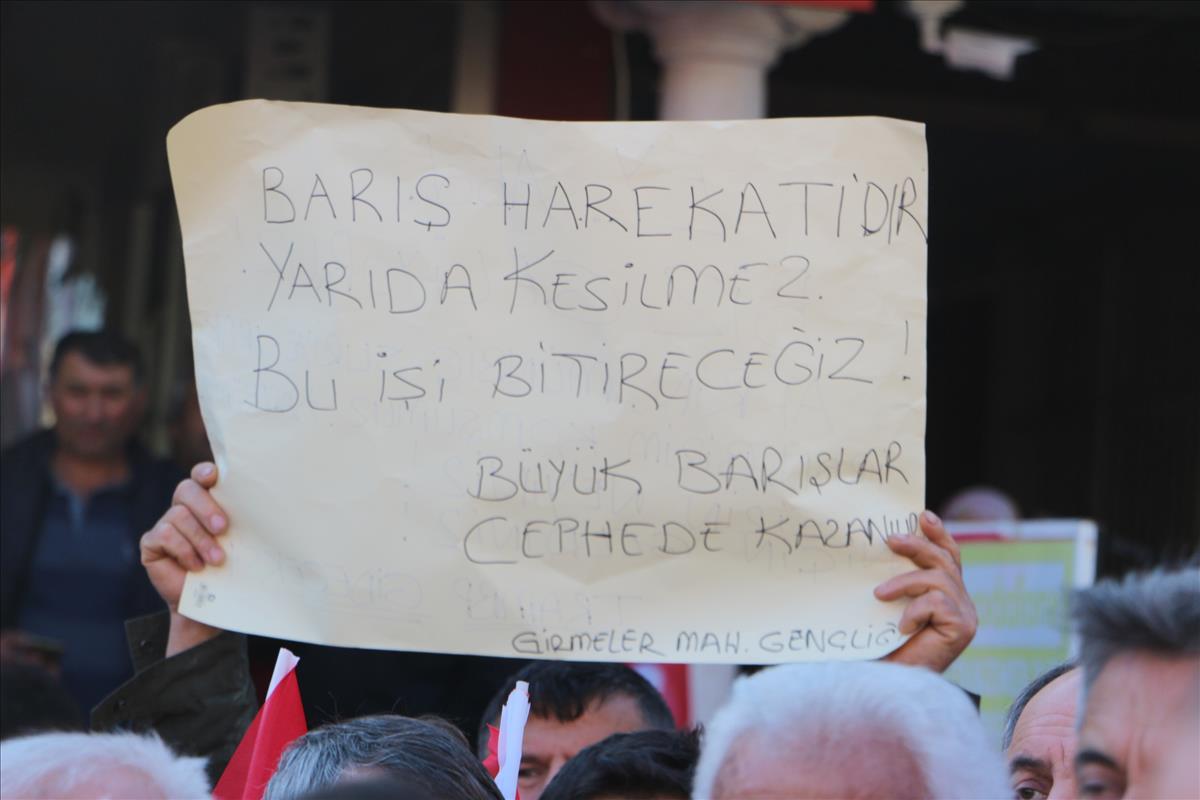 BARIŞ HAREKATİDIR
YARIDA KESİLMEZ.
BU İŞİ BİTİRECEĞİZ!
BÜYÜK BARIŞLAR
CEPHEDE KAZANILIR
GİRMELER MAH. GENÇLİĞİ